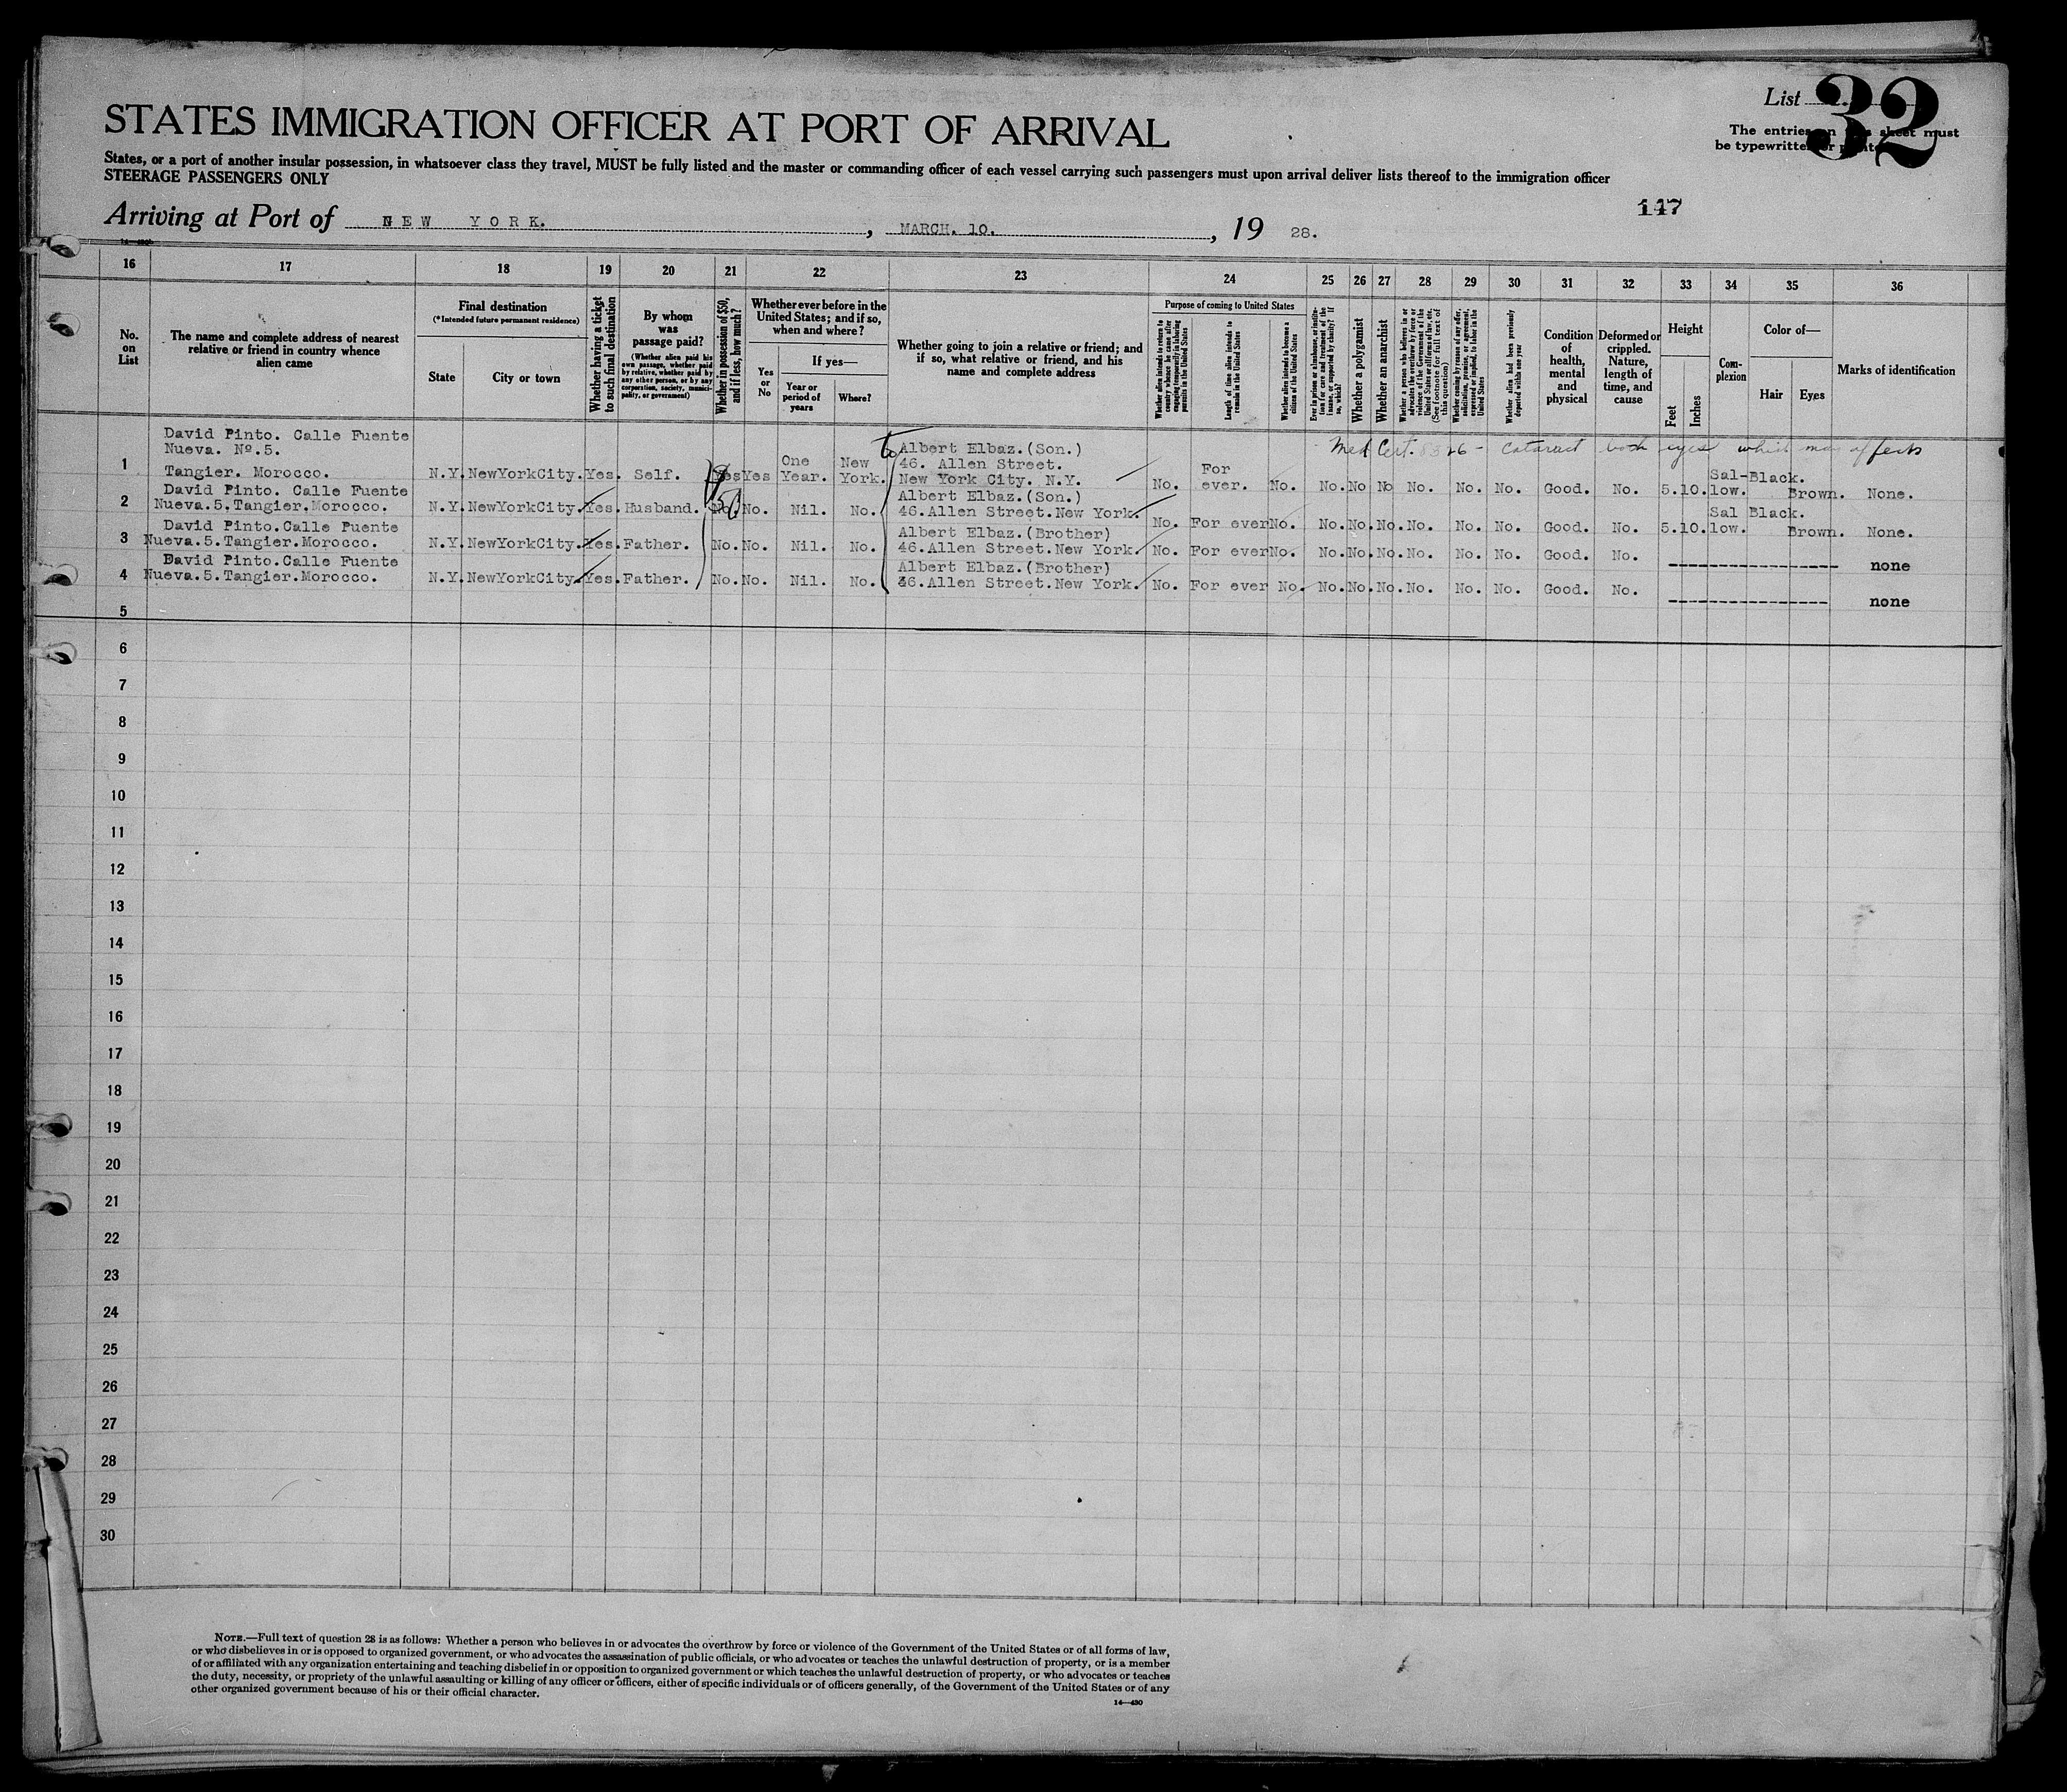 List 32
STATES IMMIGRATION OFFICER AT PORT OF ARRIVAL
The entries on this sheet must
be typewritten or printed
States, or a port of another insular possession, in whatsoever class they travel, MUST be fully listed and the master or commanding officer of each vessel carrying such passengers must upon arrival deliver lists thereof to the immigration officer
STEERAGE PASSENGERS ONLY
147
Arriving at Port of NEW YORK. , MARCH. 10. , 19 28.
16 17 18 19 20 21 22 23 24 25 26 27 28 29 30 31 32 33 34 35 36
No. on List
The name and complete address of nearest relative or friend in country whence alien came
Final destination
(*Intended future permanent residence)
State
City or town
Whether having a ticket to such final destination
By whom was passage paid?
(Whether alien paid his own passage, whether paid by relative, whether paid by any other person, or by any corporation, society, municipality, or government)
Whether in possession of $50, and if less, how much?
Whether ever before in the United States; and if so, when and where?
Yes or No
If yes—
Year or period of years
Where?
Whether going to join a relative or friend; and if so, what relative or friend, and his name and complete address
Purpose of coming to United States
Whether alien intends to return to country whence he came after engaging temporarily in laboring pursuits in the United States
Length of time alien intends to remain in the United States
Whether alien intends to become a citizen of the United States
Ever in prison or almshouse, or institution for care and treatment of the insane, or supported by charity? If so, which?
Whether a polygamist
Whether an anarchist
Whether a person who believes in or advocates the overthrow by force or violence of the Government of the United States or all forms of law, etc. (See footnote for full text of this question)
Whether coming by reason of any offer, solicitation, promise, or agreement, expressed or implied, to labor in the United States
Whether alien had been previously deported within one year
Condition of health, mental and physical
Deformed or crippled. Nature, length of time, and cause
Height
Feet
Inches
Complexion
Color of—
Hair
Eyes
Marks of identification
Med Cert. 8326 - Cataract both eyes which may affects
David Pinto. Calle Fuente
Nueva. Nº.5.
1 Tangier. Morocco. N.Y. NewYorkCity. Yes. Self. Yes Yes One Year. New York. to Albert Elbaz.(Son.)
46. Allen Street.
New York City. N.Y. No. For ever. No. No. No No No. No. No. Good. No. 5.10. Sal-low. Black. Brown. None.
$50
David Pinto. Calle Fuente
2 Nueva.5.Tangier.Morocco. N.Y. NewYorkCity. Yes. Husband. No. No. Nil. No. Albert Elbaz.(Son.)
46.Allen Street.New York. No. For ever No. No. No. No. No. No. No. Good. No. 5.10. Sal low. Black. Brown. None.
David Pinto.Calle Fuente
3 Nueva.5.Tangier.Morocco. N.Y. NewYorkCity. Yes. Father. No. No. Nil. No. Albert Elbaz.(Brother)
46.Allen Street.New York. No. For ever No. No. No. No. No. No. No. Good. No. ----------------- none
David Pinto.Calle Fuente
4 Nueva.5.Tangier.Morocco. N.Y. NewYorkCity. Yes. Father. No. No. Nil. No. Albert Elbaz.(Brother)
46.Allen Street.New York. No. For ever No. No. No. No. No. No. No. Good. No. ---------------- none
5
6
7
8
9
10
11
12
13
14
15
16
17
18
19
20
21
22
23
24
25
26
27
28
29
30
NOTE.—Full text of question 28 is as follows: Whether a person who believes in or advocates the overthrow by force or violence of the Government of the United States or of all forms of law,
or who disbelieves in or is opposed to organized government, or who advocates the assassination of public officials, or who advocates or teaches the unlawful destruction of property, or is a member
of or affiliated with any organization entertaining and teaching disbelief in or opposition to organized government or which teaches the unlawful destruction of property, or who advocates or teaches
the duty, necessity, or propriety of the unlawful assaulting or killing of any officer or officers, either of specific individuals or of officers generally, of the Government of the United States or of any
other organized government because of his or their official character.
14—430